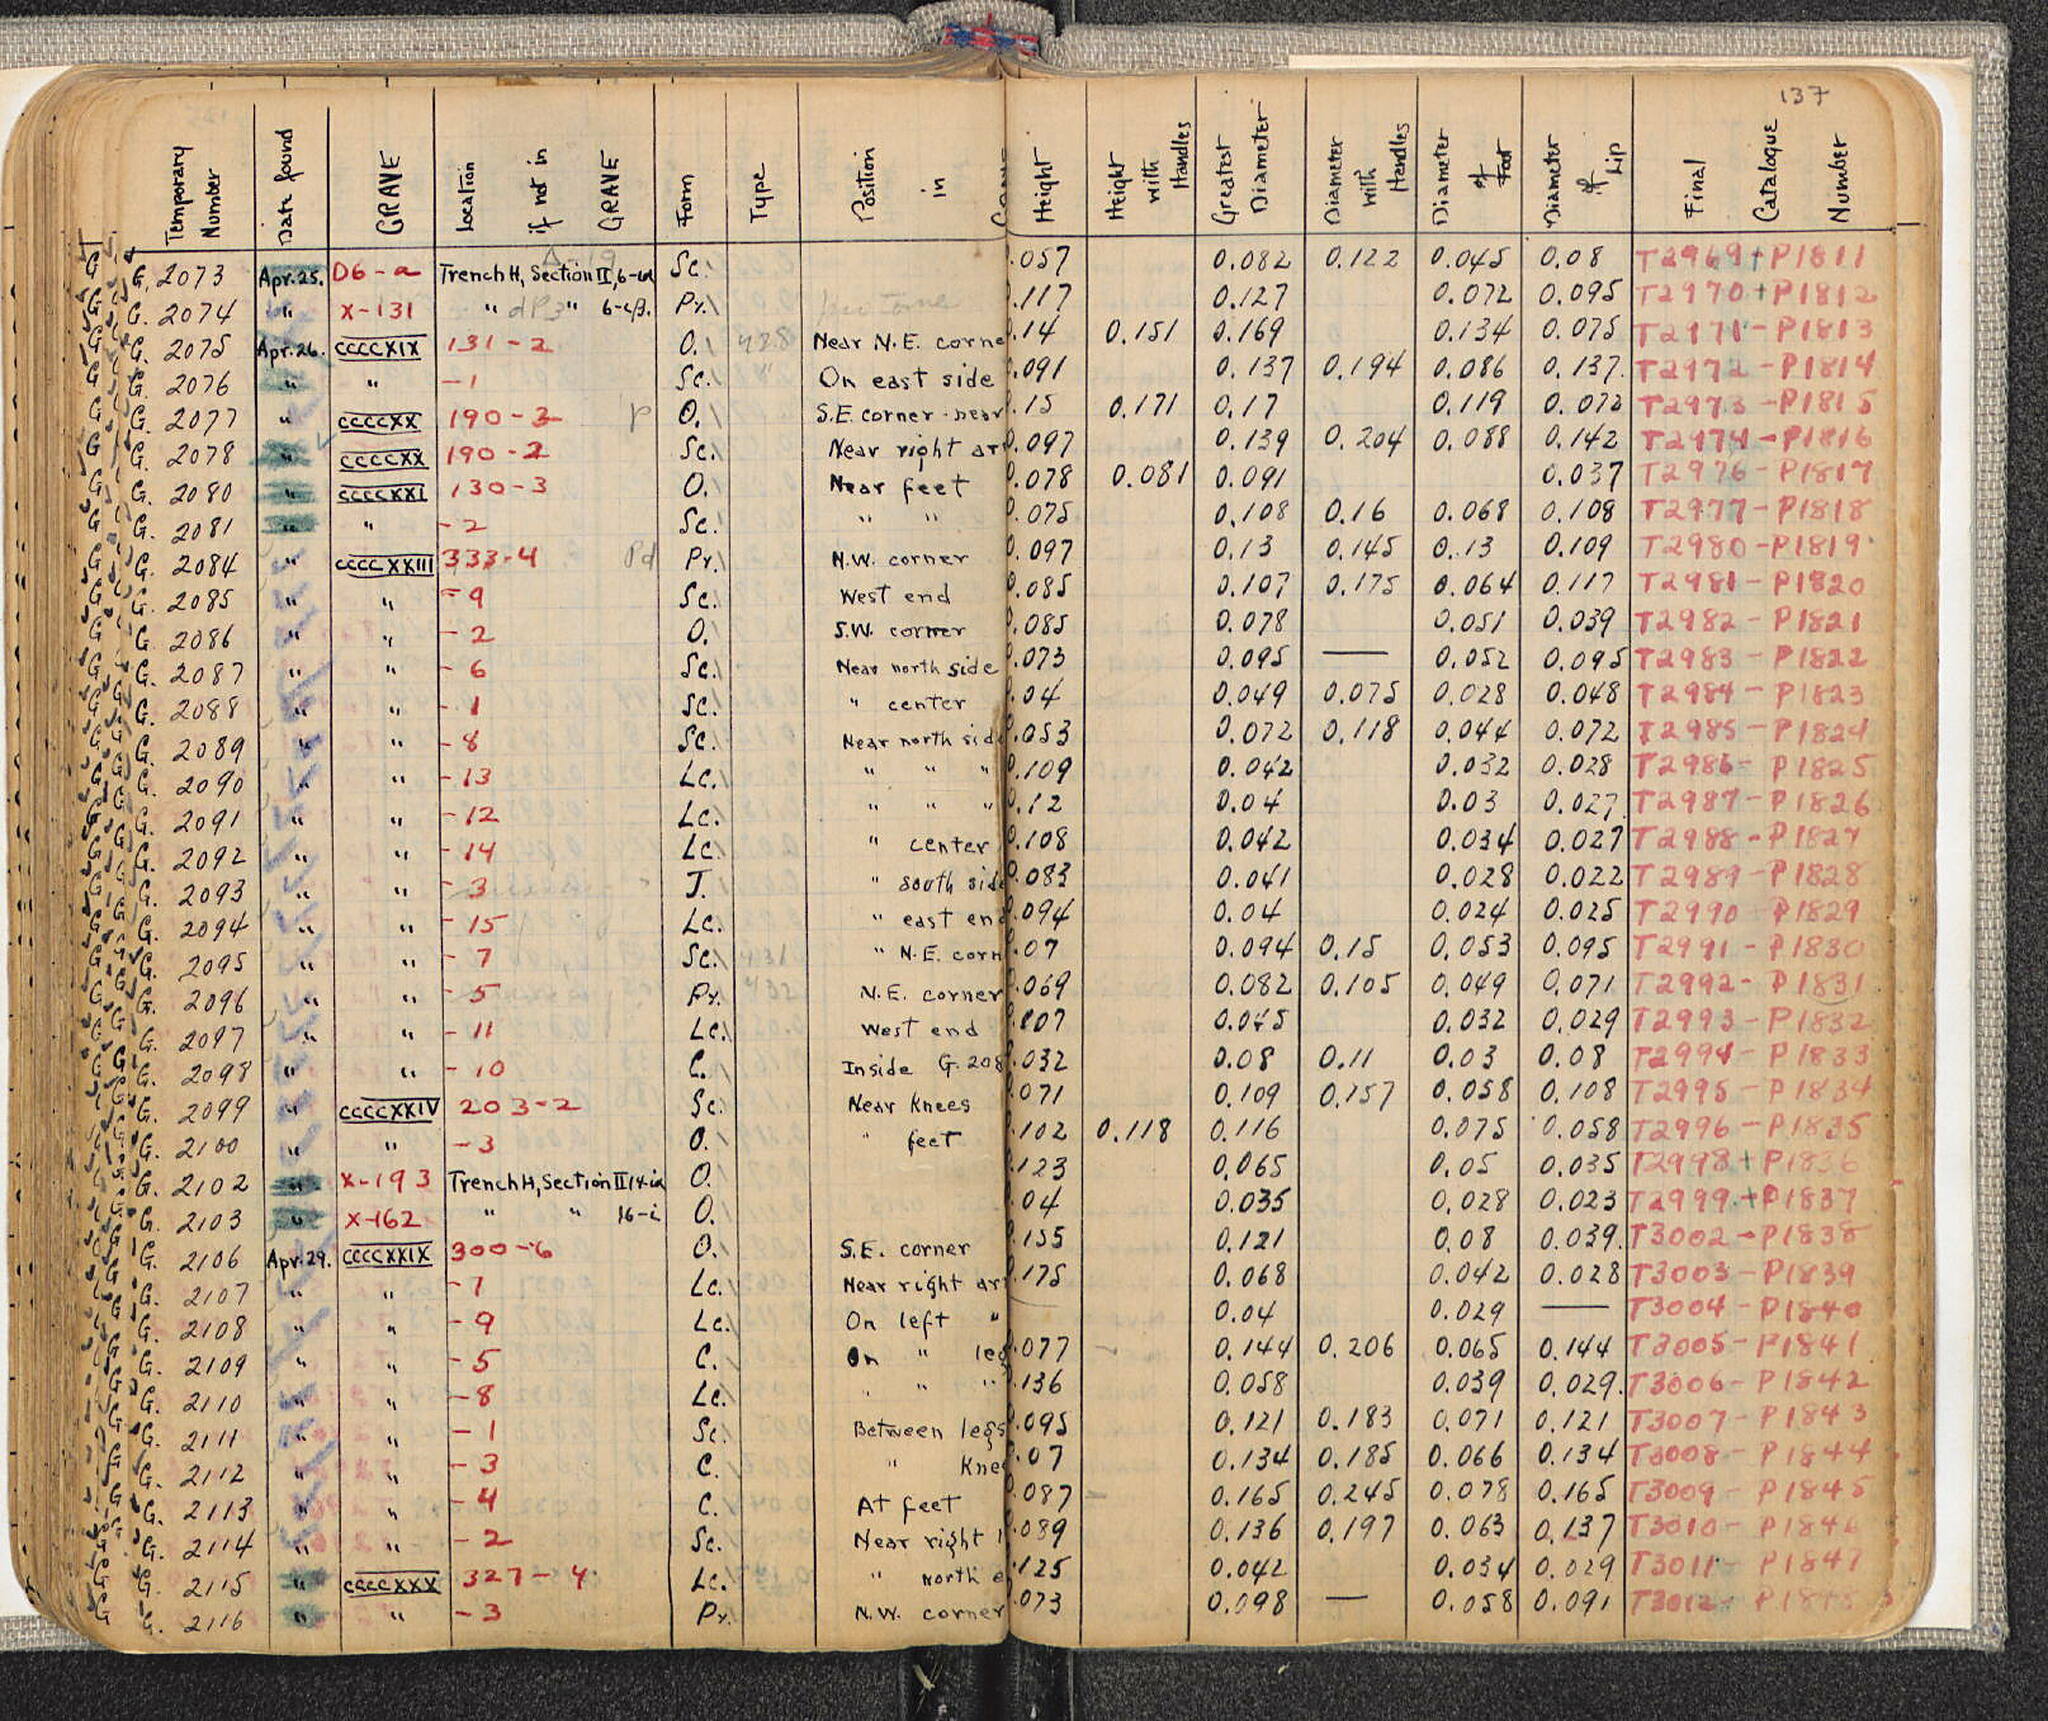 137
Temporary Number | Date found | GRAVE | Location if not in GRAVE | Form | Type | Position in | Height | Height with Handles | Greatest Diameter | Diameter with Handles | Diameter of Foot | Diameter of Lip | Final Catalogue Number
G. 2073 Apr. 25. D6-a Trench H, Section II, 6-ia Sc. .057 0.082 0.122 0.045 0.08 T2969+P1811
G. 2074 " X-131 " " 6-iβ. Py. .117 0.127 0.072 0.095 T2970+P1812
G. 2075 Apr. 26. CCCCXIX 131-2 O. 428 Near N.E. corne .14 0.151 0.169 0.134 0.075 T2971-P1813
G. 2076 " " -1 Sc. " On east side .091 0.137 0.194 0.086 0.137. T2972-P1814
G. 2077 " CCCCXX 190-3 P O. S.E. corner near .15 0.171 0.17 0.119 0.072 T2973-P1815
G. 2078 " CCCCXX 190-2 Sc. Near right ar 0.097 0.139 0.204 0.088 0.142 T2974-P1816
G. 2080 " CCCCXXI 130-3 O. Near feet 0.078 0.081 0.091 0.037 T2976-P1817
G. 2081 " " -2 Sc. " " 0.075 0.108 0.16 0.068 0.108 T2977-P1818
G. 2084 " CCCCXXIII 333-4 Pd Py. N.W. corner 0.097 0.13 0.145 0.13 0.109 T2980-P1819
G. 2085 " " -9 Sc. West end 0.085 0.107 0.175 0.064 0.117 T2981-P1820
G. 2086 " " -2 O. S.W. corner 0.085 0.078 0.051 0.039 T2982-P1821
G. 2087 " " -6 Sc. Near north side 0.073 0.095 — 0.052 0.095 T2983-P1822
G. 2088 " " -1 Sc. " center 0.04 0.049 0.075 0.028 0.048 T2984-P1823
G. 2089 " " -8 Sc. Near north sid 0.053 0.072 0.118 0.044 0.072 T2985-P1824
G. 2090 " " -13 Lc. " " " 0.109 0.042 0.032 0.028 T2986-P1825
G. 2091 " " -12 Lc. " " " 0.12 0.04 0.03 0.027 T2987-P1826
G. 2092 " " -14 Lc. " center 0.108 0.042 0.034 0.027 T2988-P1827
G. 2093 " " -3 J. " south side 0.083 0.041 0.028 0.022 T2989-P1828
G. 2094 " " -15 Lc. " east end 0.094 0.04 0.024 0.025 T2990-P1829
G. 2095 " " -7 Sc. 431 " N.E. corn 0.07 0.094 0.15 0.053 0.095 T2991-P1830
G. 2096 " " -5 Py. 432 N.E. corner .069 0.082 0.105 0.049 0.071 T2992-P1831
G. 2097 " " -11 Lc. West end .107 0.045 0.032 0.029 T2993-P1832
G. 2098 " " -10 C. Inside G. 208 .032 0.08 0.11 0.03 0.08 T2994-P1833
G. 2099 " CCCCXXIV 203-2 Sc. Near Knees .071 0.109 0.157 0.058 0.108 T2995-P1834
G. 2100 " " -3 O. " feet .102 0.118 0.116 0.075 0.058 T2996-P1835
G. 2102 " X-193 Trench H, Section II 14-ia O. .123 0.065 0.05 0.035 T2998+P1836
G. 2103 " X-162 " " 16-i O. .04 0.035 0.028 0.023 T2999+P1837
G. 2106 Apr. 29. CCCCXXIX 300-6 O. S.E. corner .155 0.121 0.08 0.039. T3002-P1838
G. 2107 " " -7 Lc. Near right ar .175 0.068 0.042 0.028 T3003-P1839
G. 2108 " " -9 Lc. On left " 0.04 0.029 — T3004-P1840
G. 2109 " " -5 C. On " leg .077 0.144 0.206 0.065 0.144 T3005-P1841
G. 2110 " " -8 Lc. " " " .136 0.058 0.039 0.029. T3006-P1842
G. 2111 " " -1 Sc. Between legs .095 0.121 0.183 0.071 0.121 T3007-P1843
G. 2112 " " -3 C. " Knee .07 0.134 0.185 0.066 0.134 T3008-P1844
G. 2113 " " -4 C. At feet .087 0.165 0.245 0.078 0.165 T3009-P1845
G. 2114 " " -2 Sc. Near right .089 0.136 0.197 0.063 0.137 T3010-P1846
G. 2115 " CCCCXXX 327-4 Lc. " north e .125 0.042 0.034 0.029 T3011-P1847
G. 2116 " " -3 Py. N.W. corner .073 0.098 — 0.058 0.091 T3012-